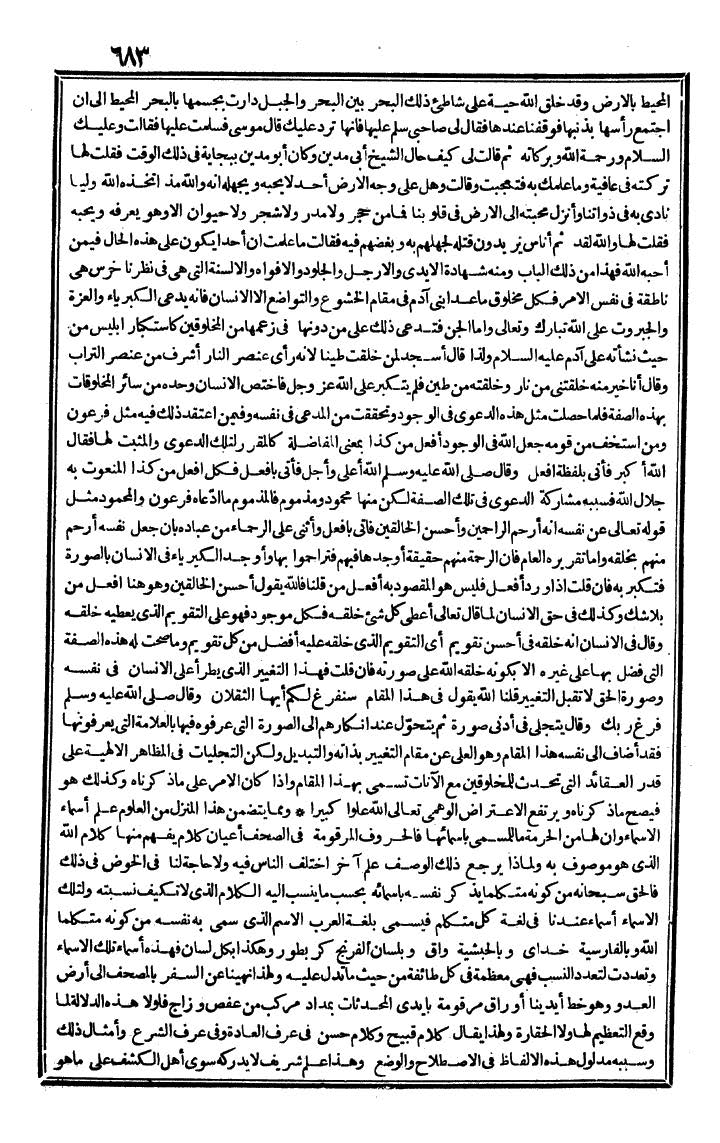 ٦٨٣
المحيط بالارض وقد خلق الله حية على شاطئ ذلك البحر بين البحر والجبل دارت بجسمها بالبحر المحيط الى ان
اجتمع رأسها بذنبها فوقفنا عندها فقال لى صاحبى سلم عليها فانها ترد عليك قال موسى فسلمت عليها فقالت وعليك
السلام ورحمة الله وبركاته ثم قالت لى كيف حال الشيخ أبى مدين وكان أبو مدين ببجاية فى ذلك الوقت فقلت لها
تركته فى عافية وما علمك به فتعجبت وقالت وهل على وجه الارض أحد لا يحبه ويجهله انه والله مذ اتخذه الله وليا
نادى به فى ذواتنا وأنزل محبته الى الارض فى قلوبنا فما من حجر ولا مدر ولا شجر ولا حيوان الا وهو يعرفه ويحبه
فقلت لها والله لقد ثم أناس يريدون قتله لجهلهم به وبغضهم فيه فقالت ما علمت ان أحدا يكون على هذه الحال فيمن
أحبه الله فهذا من ذلك الباب ومنه شهادة الايدى والارجل والجلود والافواه والالسنة التى هى فى نظرنا خرس هى
ناطقة فى نفس الامر فكل مخلوق ما عدا بنى آدم فى مقام الخشوع والتواضع الا الانسان فانه يدعى الكبرياء والعزة
والجبروت على الله تبارك وتعالى واما الجن فتدعى ذلك على من دونها فى زعمها من المخلوقين كاستكبار ابليس من
حيث نشأته على آدم عليه السلام ولذا قال أسجد لمن خلقت طينا لانه رأى عنصر النار أشرف من عنصر التراب
وقال أنا خير منه خلقتنى من نار وخلقته من طين فلم يتكبر على الله عز وجل فاختص الانسان وحده من سائر المخلوقات
بهذه الصفة فلما حصلت مثل هذه الدعوى فى الوجود وتحققت من المدعى فى نفسه وفيمن اعتقد ذلك فيه مثل فرعون
ومن استخف من قومه جعل الله فى الوجود أفعل من كذا بمعنى المفاضلة كالمقرر لتلك الدعوى والمثبت لها فقال
الله أكبر فأتى بلفظة افعل وقال صلى الله عليه وسلم الله أعلى وأجل فأتى بافعل فكل افعل من كذا المنعوت به
جلال الله فسببه مشاركة الدعوى فى تلك الصفة لكن منها محمود ومذموم فالمذموم ما ادّعاه فرعون والمحمود مثل
قوله تعالى عن نفسه انه أرحم الراحمين وأحسن الخالقين فأتى بافعل وأثنى على الرحماء من عباده بان جعل نفسه أرحم
منهم بخلقه واما تقريره العام فان الرحمة منهم حقيقة أوجدها فيهم فتراحموا بها وأوجد الكبرياء فى الانسان بالصورة
فتكبر به فان قلت اذا ورد أفعل فليس هو المقصود به أفعل من قلنا فالله يقول أحسن الخالقين وهو هنا افعل من
بلاشك وكذلك فى حق الانسان لما قال تعالى أعطى كل شئ خلقه فكل موجود فهو على التقويم الذى يعطيه خلقه
وقال فى الانسان انه خلقه فى أحسن تقويم أى التقويم الذى خلقه عليه أفضل من كل تقويم وما صحت له هذه الصفة
التى فضل بها على غيره الا بكونه خلقه الله على صورته فان قلت فهذا التغيير الذى يطرأ على الانسان فى نفسه
وصورة الحق لا تقبل التغيير قلنا الله يقول فى هذا المقام سنفرغ لكم أيها الثقلان وقال صلى الله عليه وسلم
فرغ ربك وقال يتجلى فى أدنى صورة ثم يتحوّل عند انكارهم الى الصورة التى عرفوه فيها بالعلامة التى يعرفونها
فقد أضاف الى نفسه هذا المقام وهو العلى عن مقام التغيير بذاته والتبديل ولكن التجليات فى المظاهر الالهية على
قدر العقائد التى تحدث للمخلوقين مع الآنات تسمى بهذا المقام واذا كان الامر على ماذ كرناه وكذلك هو
فيصح ماذ كرناه ويرتفع الاعتراض الوهمى تعالى الله علوا كبيرا * ومما يتضمن هذا المنزل من العلوم علم أسماء
الاسماء وان لها من الحرمة ما للمسمى باسمائها فالحروف المرقومة فى الصحف أعيان كلام يفهم منها كلام الله
الذى هو موصوف به ولماذا يرجع ذلك الوصف علم آخر اختلف الناس فيه ولا حاجة لنا فى الخوض فى ذلك
فالحق سبحانه من كونه متكلما يذكر نفسه باسمائه بحسب ما ينسب اليه الكلام الذى لا تكيف نسبته ولتلك
الاسماء أسماء عندنا فى لغة كل متكلم فيسمى بلغة العرب الاسم الذى سمى به نفسه من كونه متكلما
الله وبالفارسية خداى وبالحبشية واق وبلسان ألفرنج كريطور وهكذا بكل لسان فهذه أسماء تلك الاسماء
وتعددت لتعدد النسب فهى معظمة فى كل طائفة من حيث ما تدل عليه ولهذا نهينا عن السفر بالمصحف الى أرض
العدو وهو خط أيدينا أوراق مرقومة بايدى المحدثات بمداد مركب من عفص وزاج فلولا هذه الدلالة لما
وقع التعظيم لها ولا الحقارة ولهذا يقال كلام قبيح وكلام حسن فى عرف العادة وفى عرف الشرع وأمثال ذلك
وسببه مدلول هذه الالفاظ فى الاصطلاح والوضع وهذا علم شريف لا يدركه سوى أهل الكشف على ما هو